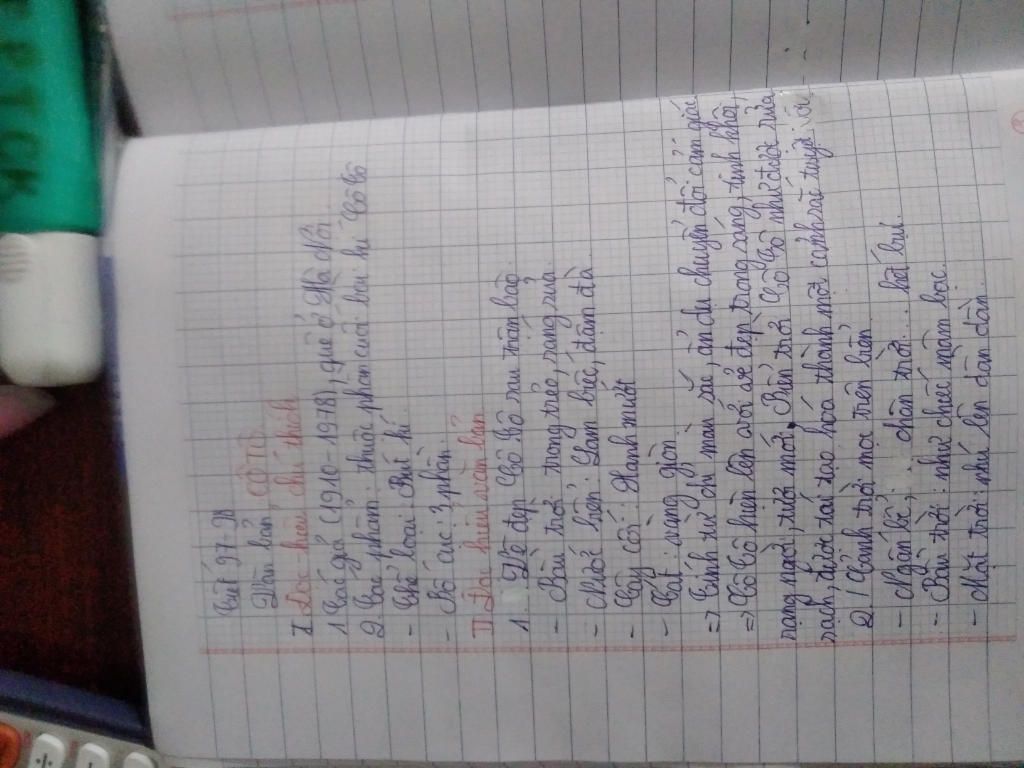 Tiết 97-98
Văn bản: CÔ TÔ
I. Đọc hiểu chú thích
1. Tác giả (1910-1978), quê ở Hà Nội
2. Tác phẩm: thuộc phần cuối bài kí Cô Tô
- Thể loại: Bút kí
- Bố cục: 3 phần.
II. Đọc hiểu văn bản
1. Vẻ đẹp Cô Tô sau trận bão.
- Bầu trời: trong trẻo, sáng sủa.
- Nước biển: Lam biếc, đậm đà
- Cây cối: Xanh mướt
- Cát: vàng giòn
=> Tính từ chỉ màu sắc, ẩn dụ chuyển đổi cảm giác
=> Cô Tô hiện lên với vẻ đẹp trong sáng, tinh khôi
rạng ngời, tươi mới. Biển trời Cô Tô như được rửa
sạch, được tái tạo hoá thành một cảnh sắc tuyệt vời.
2. Cảnh trời mọc trên biển
- Ngấn bể, chân trời... hết bụi.
- Bầu trời: như chiếc mâm bạc.
- Mặt trời: nhú lên dần dần.
TCK
÷